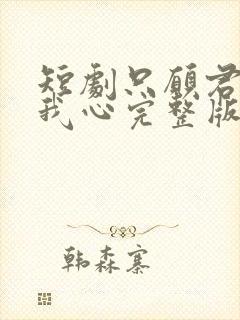 短劇只願君
我心完整版
韩森寨